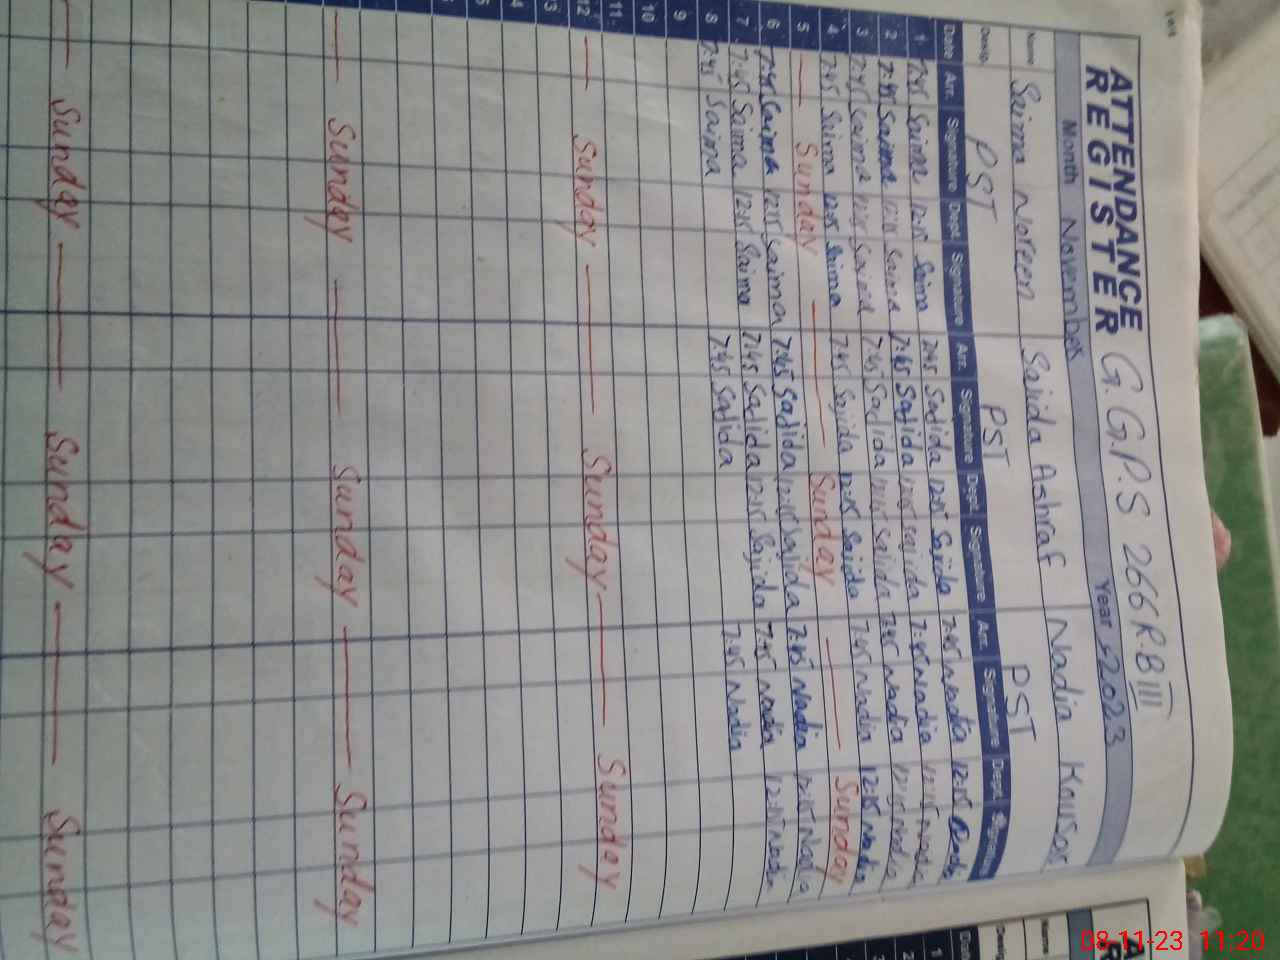 ATTENDANCE REGISTER G.G.P.S 266 R.B III
Month November Year 2023
Name Saima Noreen Sajida Ashraf Nadia Kausar
Desig. PST PST PST
Date Arr. Signature Dept. Signature Arr. Signature Dept. Signature Arr. Signature Dept. Signature
1 7:45 Saima 12:15 Saima 7:45 Sajida 12:15 Sajida 7:45 Nadia 12:15
2 7:45 Saima 12:15 Saima 7:45 Sajida 12:15 Sajida 7:45 Nadia 12:15 Nadia
3 7:45 Saima 12:15 Saima 7:45 Sajida 12:15 Sajida 7:45 Nadia 12:15 Nadia
4 7:45 Saima 12:15 Saima 7:45 Sajida 12:15 Sajida 7:45 Nadia 12:15 Nadia
5 Sunday Sunday Sunday
6 7:45 Saima 12:15 Saima 7:45 Sajida 12:15 Sajida 7:45 Nadia 12:15 Nadia
7 7:45 Saima 12:15 Saima 7:45 Sajida 12:15 Sajida 7:45 Nadia 12:15 Nadia
8 7:45 Saima 7:45 Sajida 7:45 Nadia
9
10
11
12 Sunday Sunday Sunday
13
14
Sunday Sunday Sunday
Sunday Sunday Sunday
Name
Desig.
Date
1
2
08-11-23 11:20